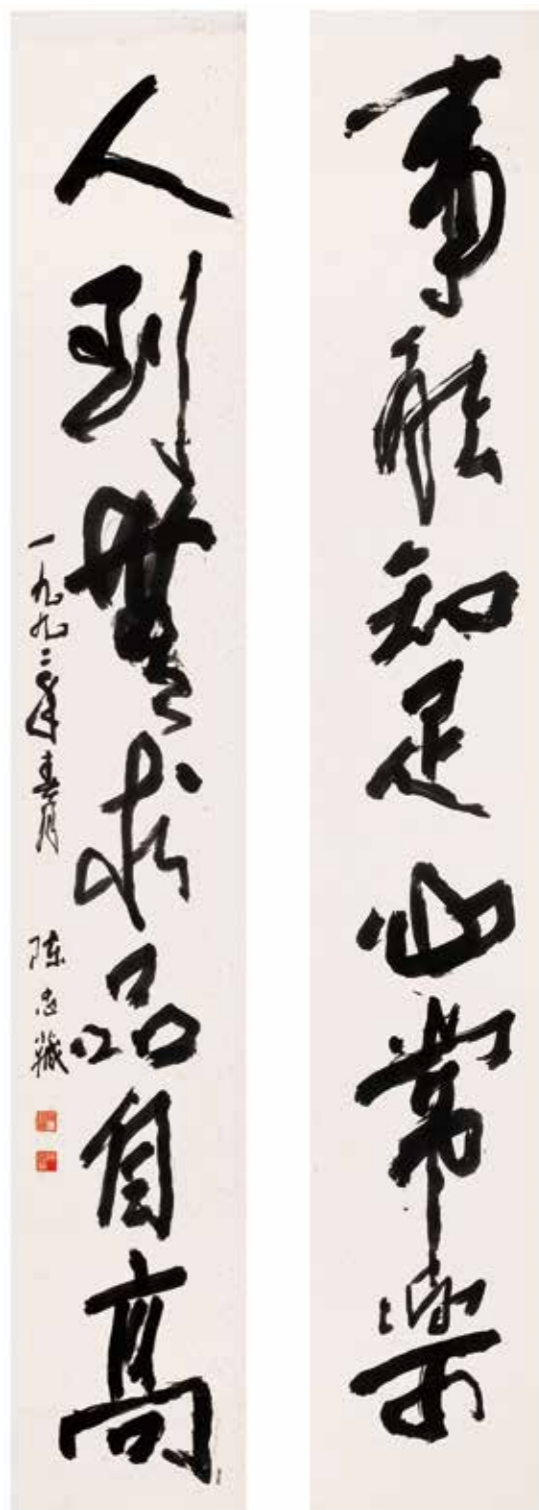 事能知足心常樂
人到無求品自高
一九九二年春月 陈忠